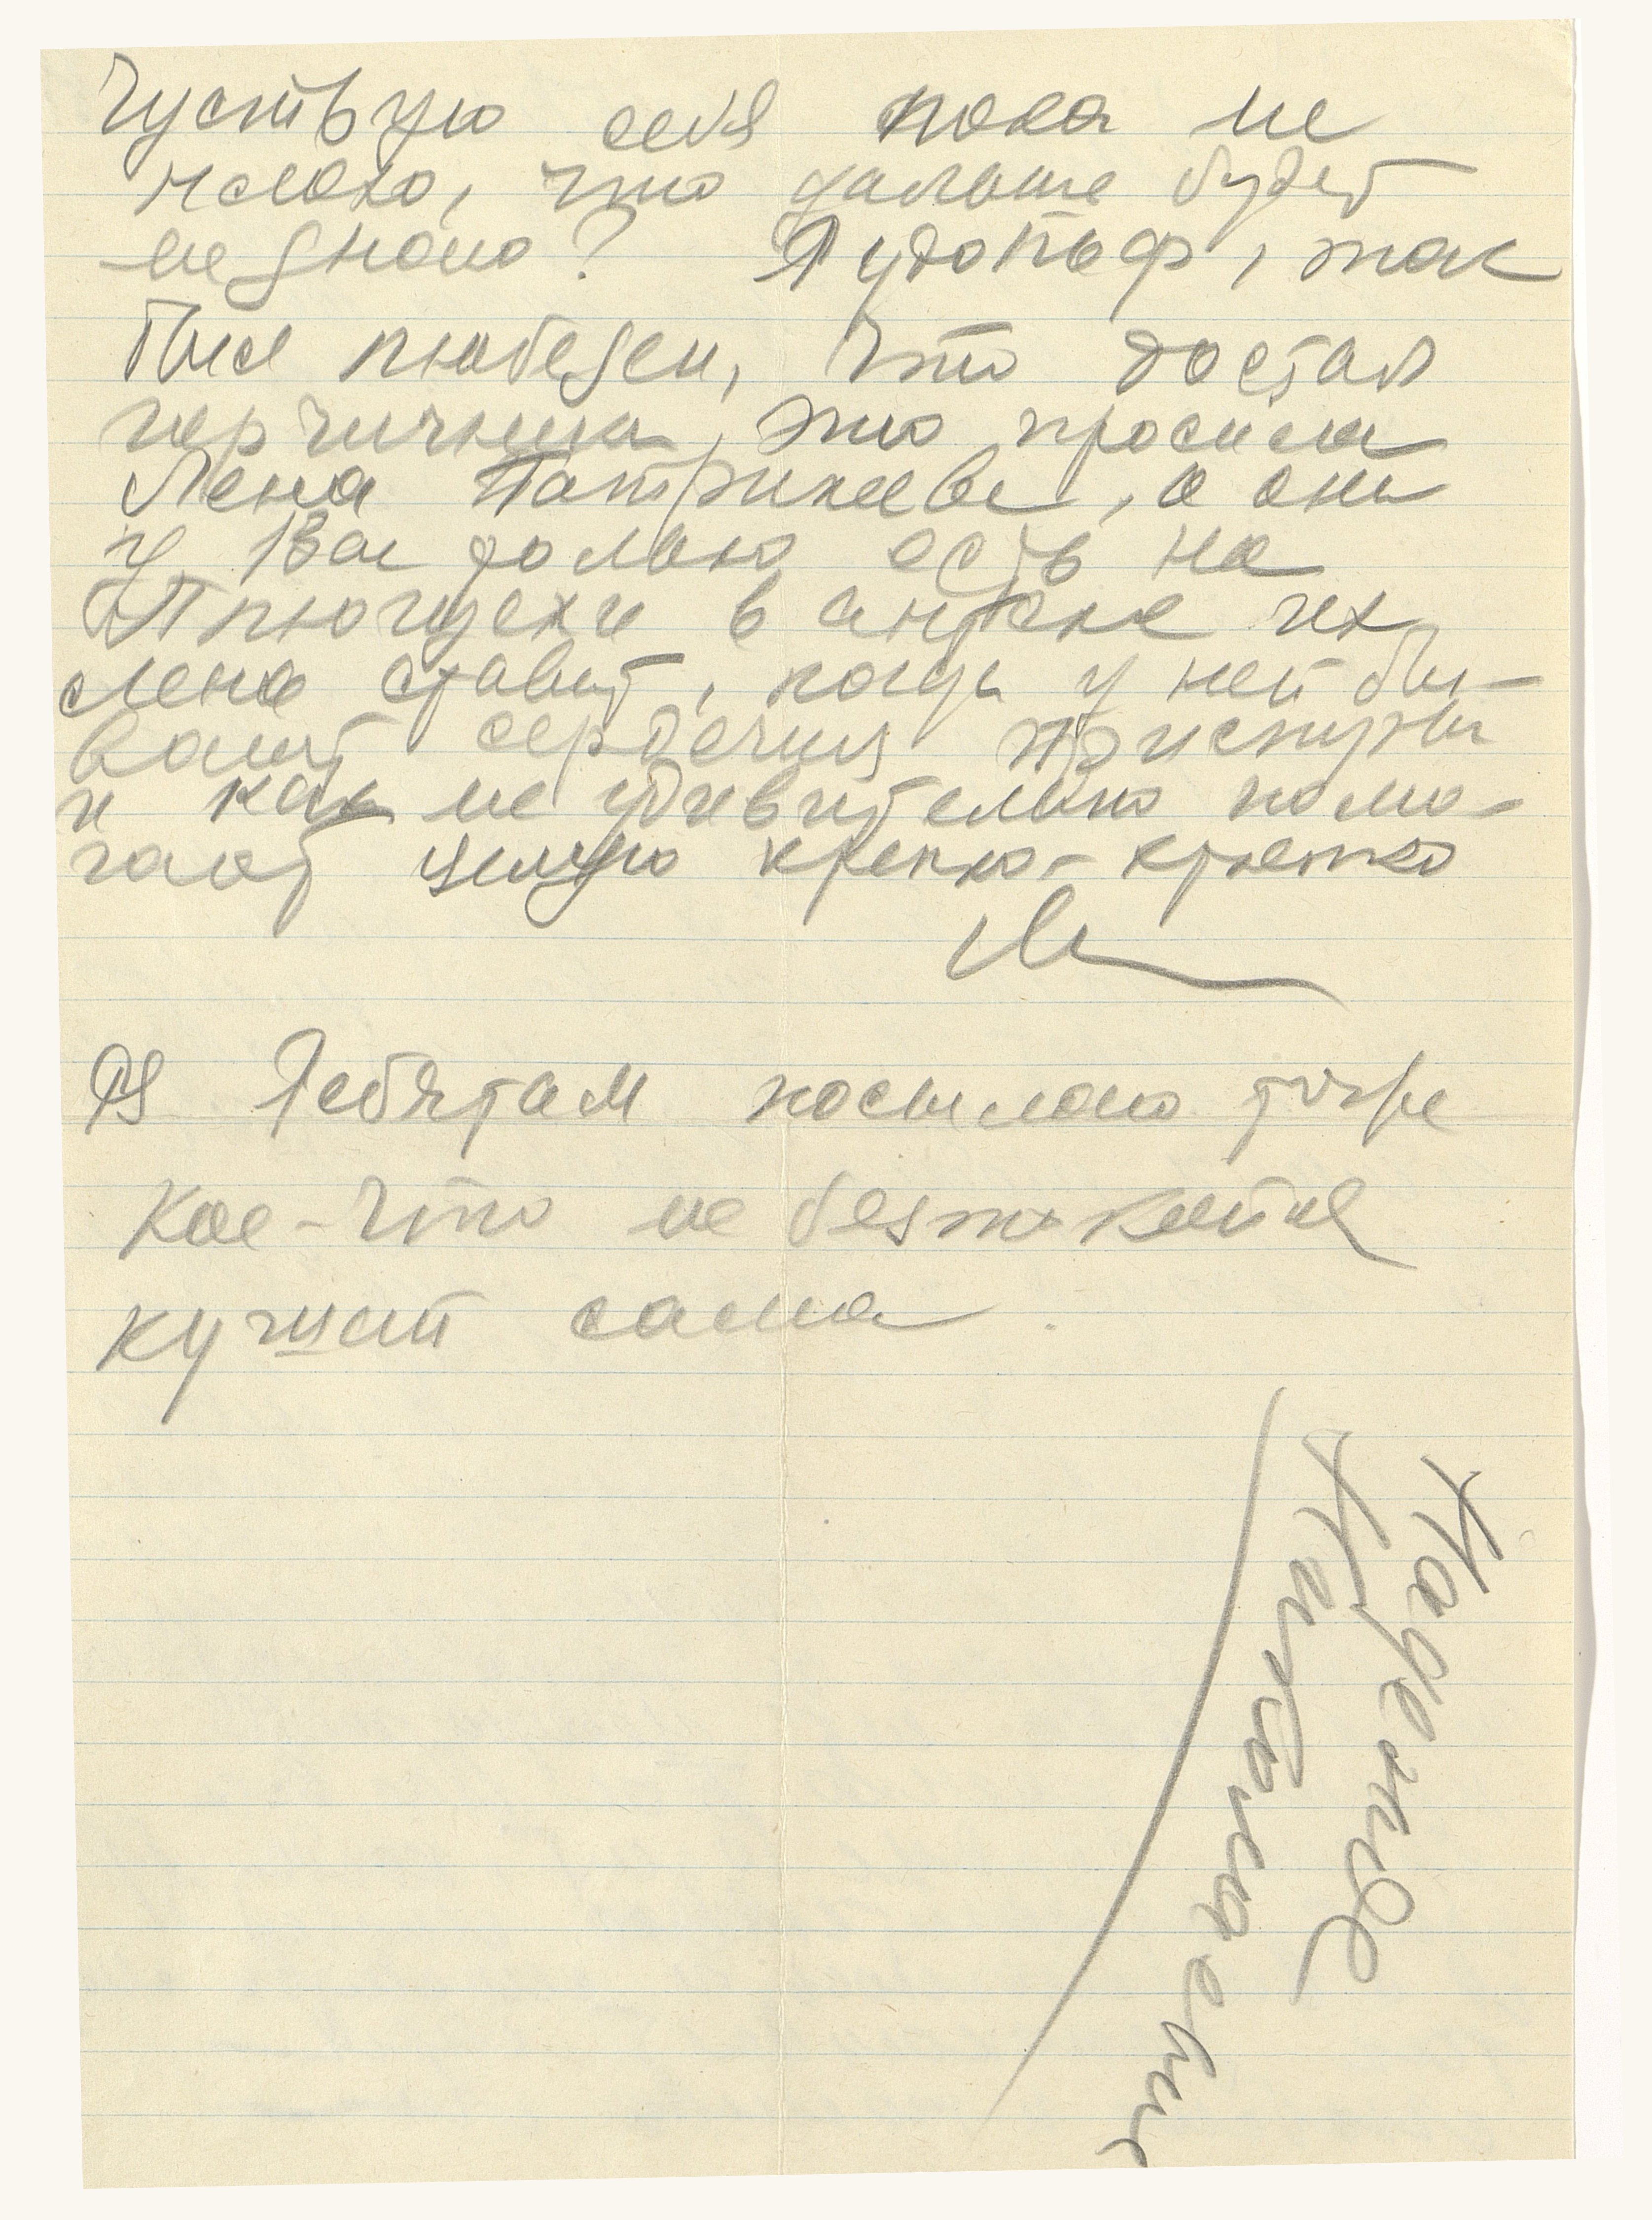 Чуствую себя пока не
плохо, что дальше будет
не знаю? Рудольф, так
был любезен, что достал
горчичники, это просила
Лена Патрикеева, а они
у Вас должно есть на
Плющихи в аптеке их
Лена ставит, когда у ней бы-
вают сердечные приступы
и как не удивительно помо-
гает целую крепко-крепко
PS Ребятам посылаю тоже
кое-что не беспокойся
кушай сама.
Наденьке
Николаевне